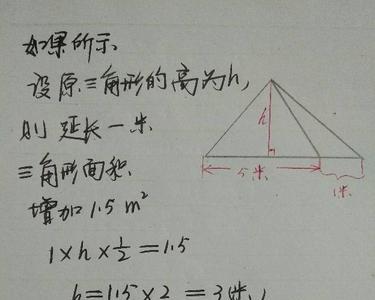 如果所示.
设原三角形的高为h,
则 延长一米
三角形面积
增加1.5 m²
1×h×½=1.5
h=1.5×2=3(米)
h
5米
1米